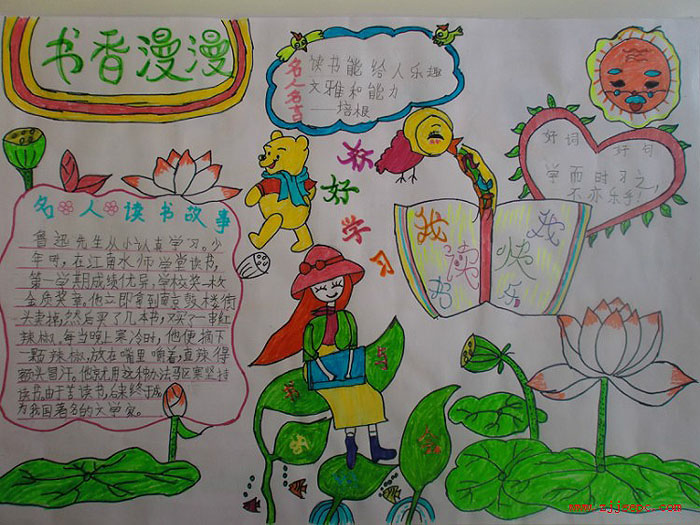 书香漫漫
名人名言
读书能给人乐趣
文雅和能力
——培根
好词好句
学而时习之,
不亦乐乎!
好好学习
我读书
我快乐
名人读书故事
鲁迅先生从小认真学习。少
年时,在江南水师学堂读书,
第一学期成绩优异,学校奖一枚
金质奖章,他立即拿到南京鼓楼街
头卖掉,然后买了几本书,又买了一串红
辣椒,每当晚上寒冷时,他便摘下
一颗辣椒,放在嘴里嚼着,直辣得
额头冒汗。他就用这种办法驱寒坚持
读书,由于苦读书,后来终于成
为我国著名的文学家。
www.zjjsepc.com